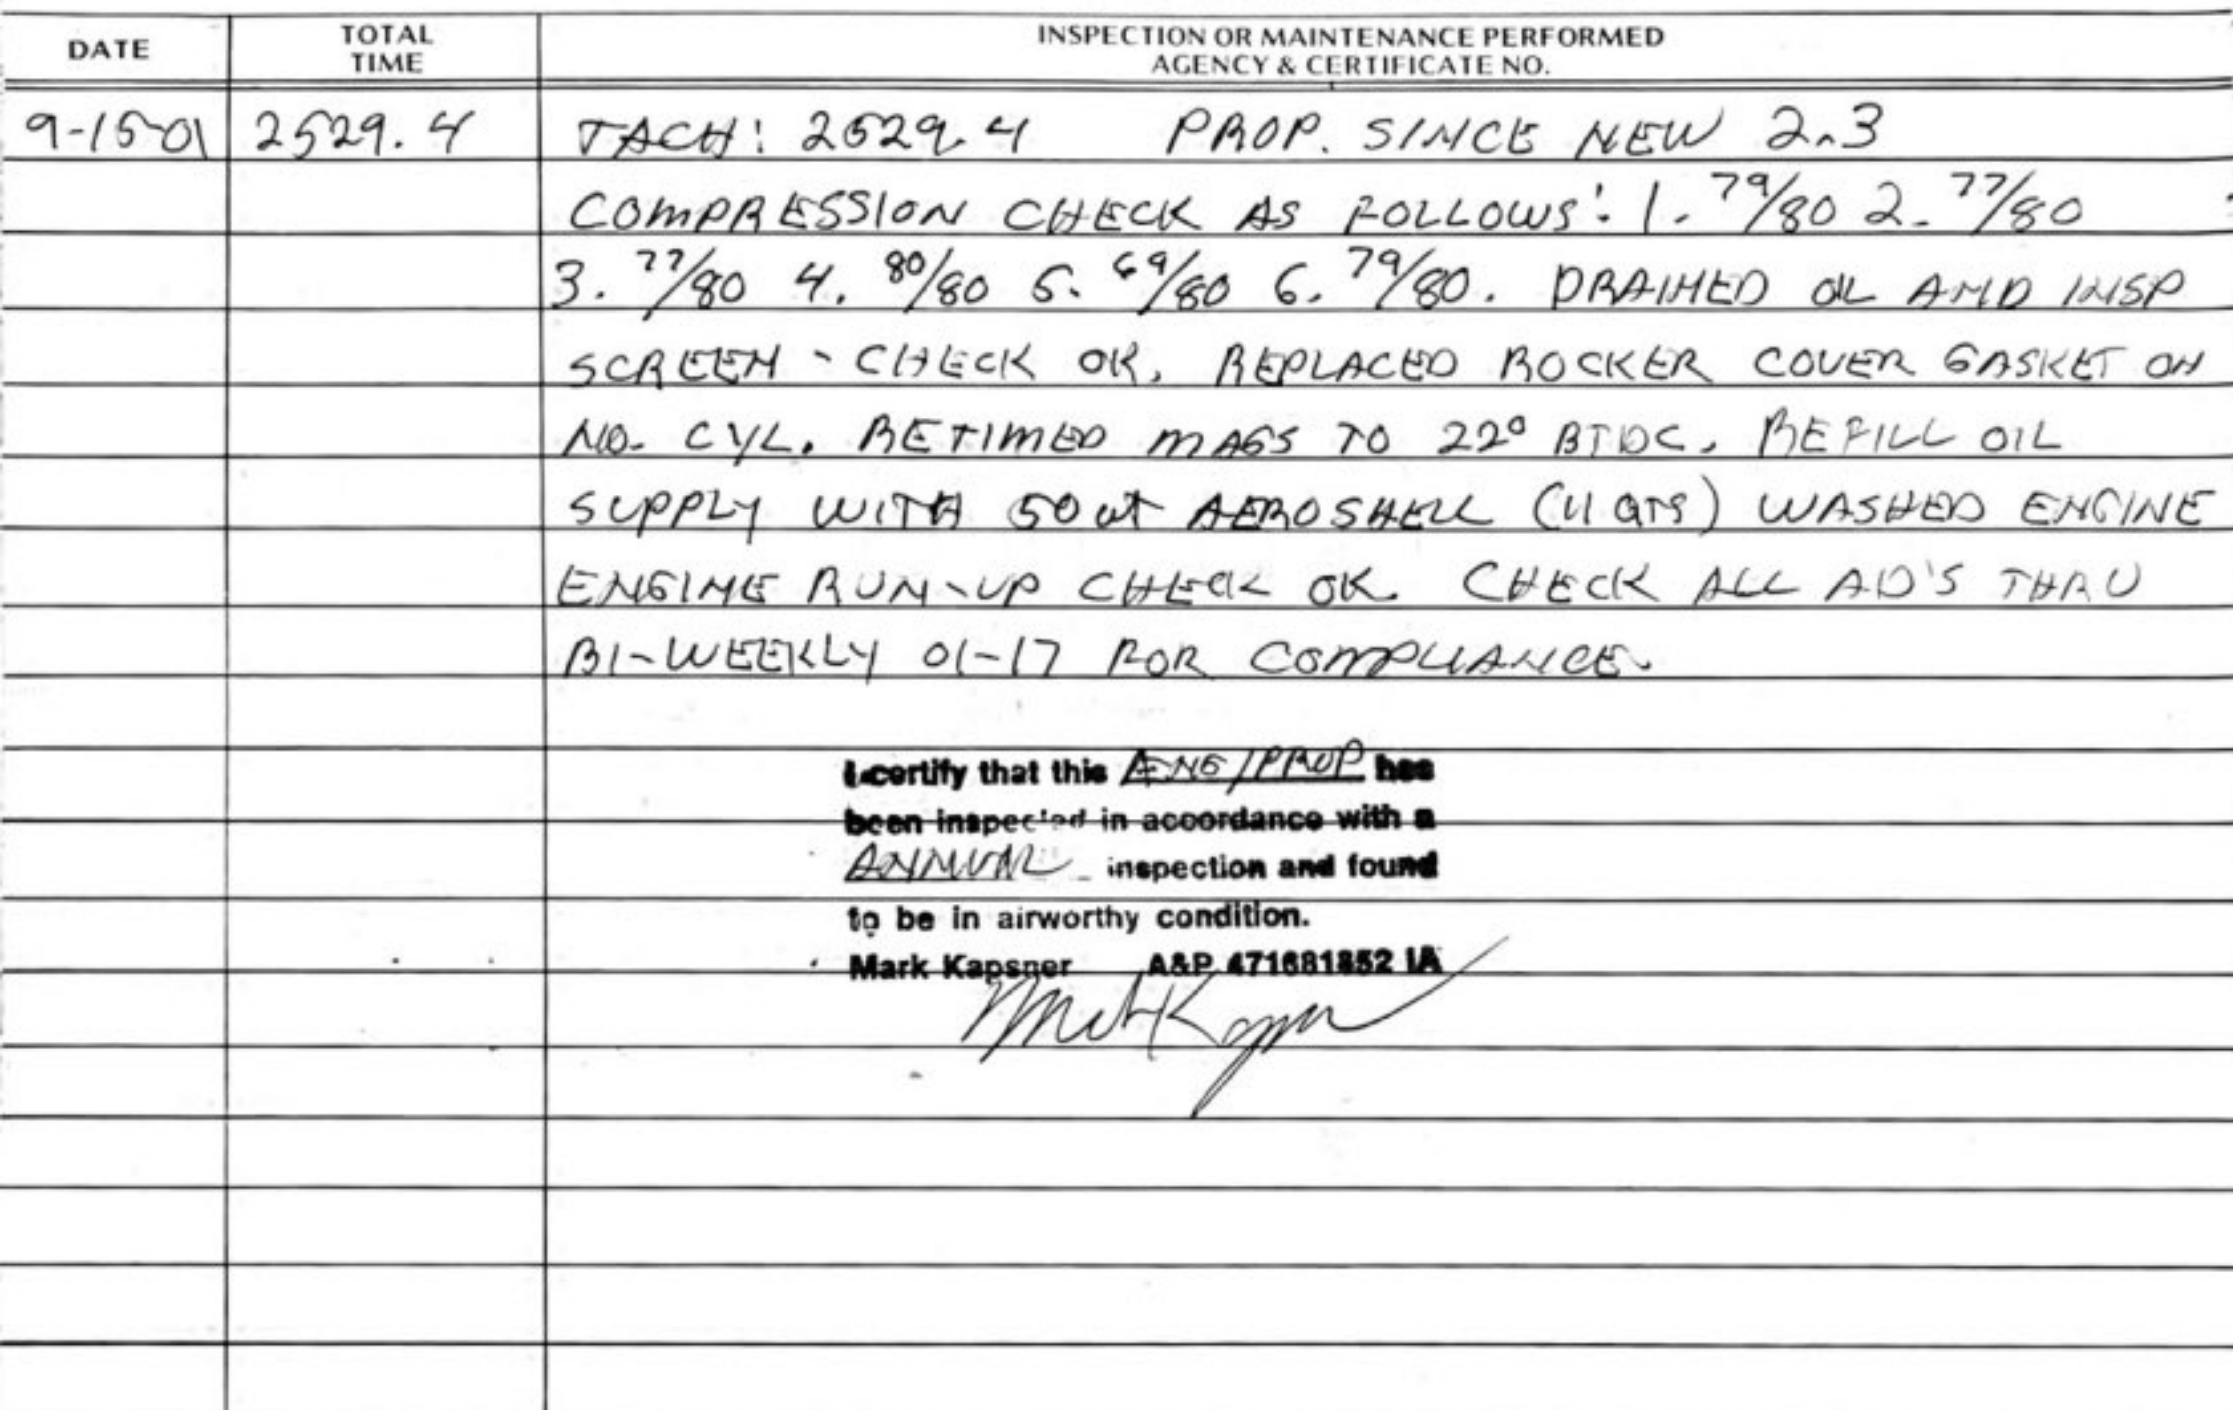 DATE TOTAL TIME INSPECTION OR MAINTENANCE PERFORMED AGENCY & CERTIFICATE NO.
9-15-01 2529.4 TACH: 2529.4 PROP. SINCE NEW 2.3
COMPRESSION CHECK AS FOLLOWS: 1. 79/80 2. 77/80
3. 77/80 4. 80/80 5. 69/80 6. 79/80. DRAINED OIL AND INSP
SCREEN - CHECK OK. REPLACED ROCKER COVER GASKET ON
NO. CYL. RETIMED MAGS TO 22° BTDC. REFILL OIL
SUPPLY WITH 50 WT AEROSHELL (11 QTS) WASHED ENGINE
ENGINE RUN-UP CHECK OK. CHECK ALL AD'S THRU
BI-WEEKLY 01-17 FOR COMPLIANCE.
I certify that this ENG/PROP has
been inspected in accordance with a
ANNUAL inspection and found
to be in airworthy condition.
Mark Kapsner A&P 471681852 IA
Mark Kapsner